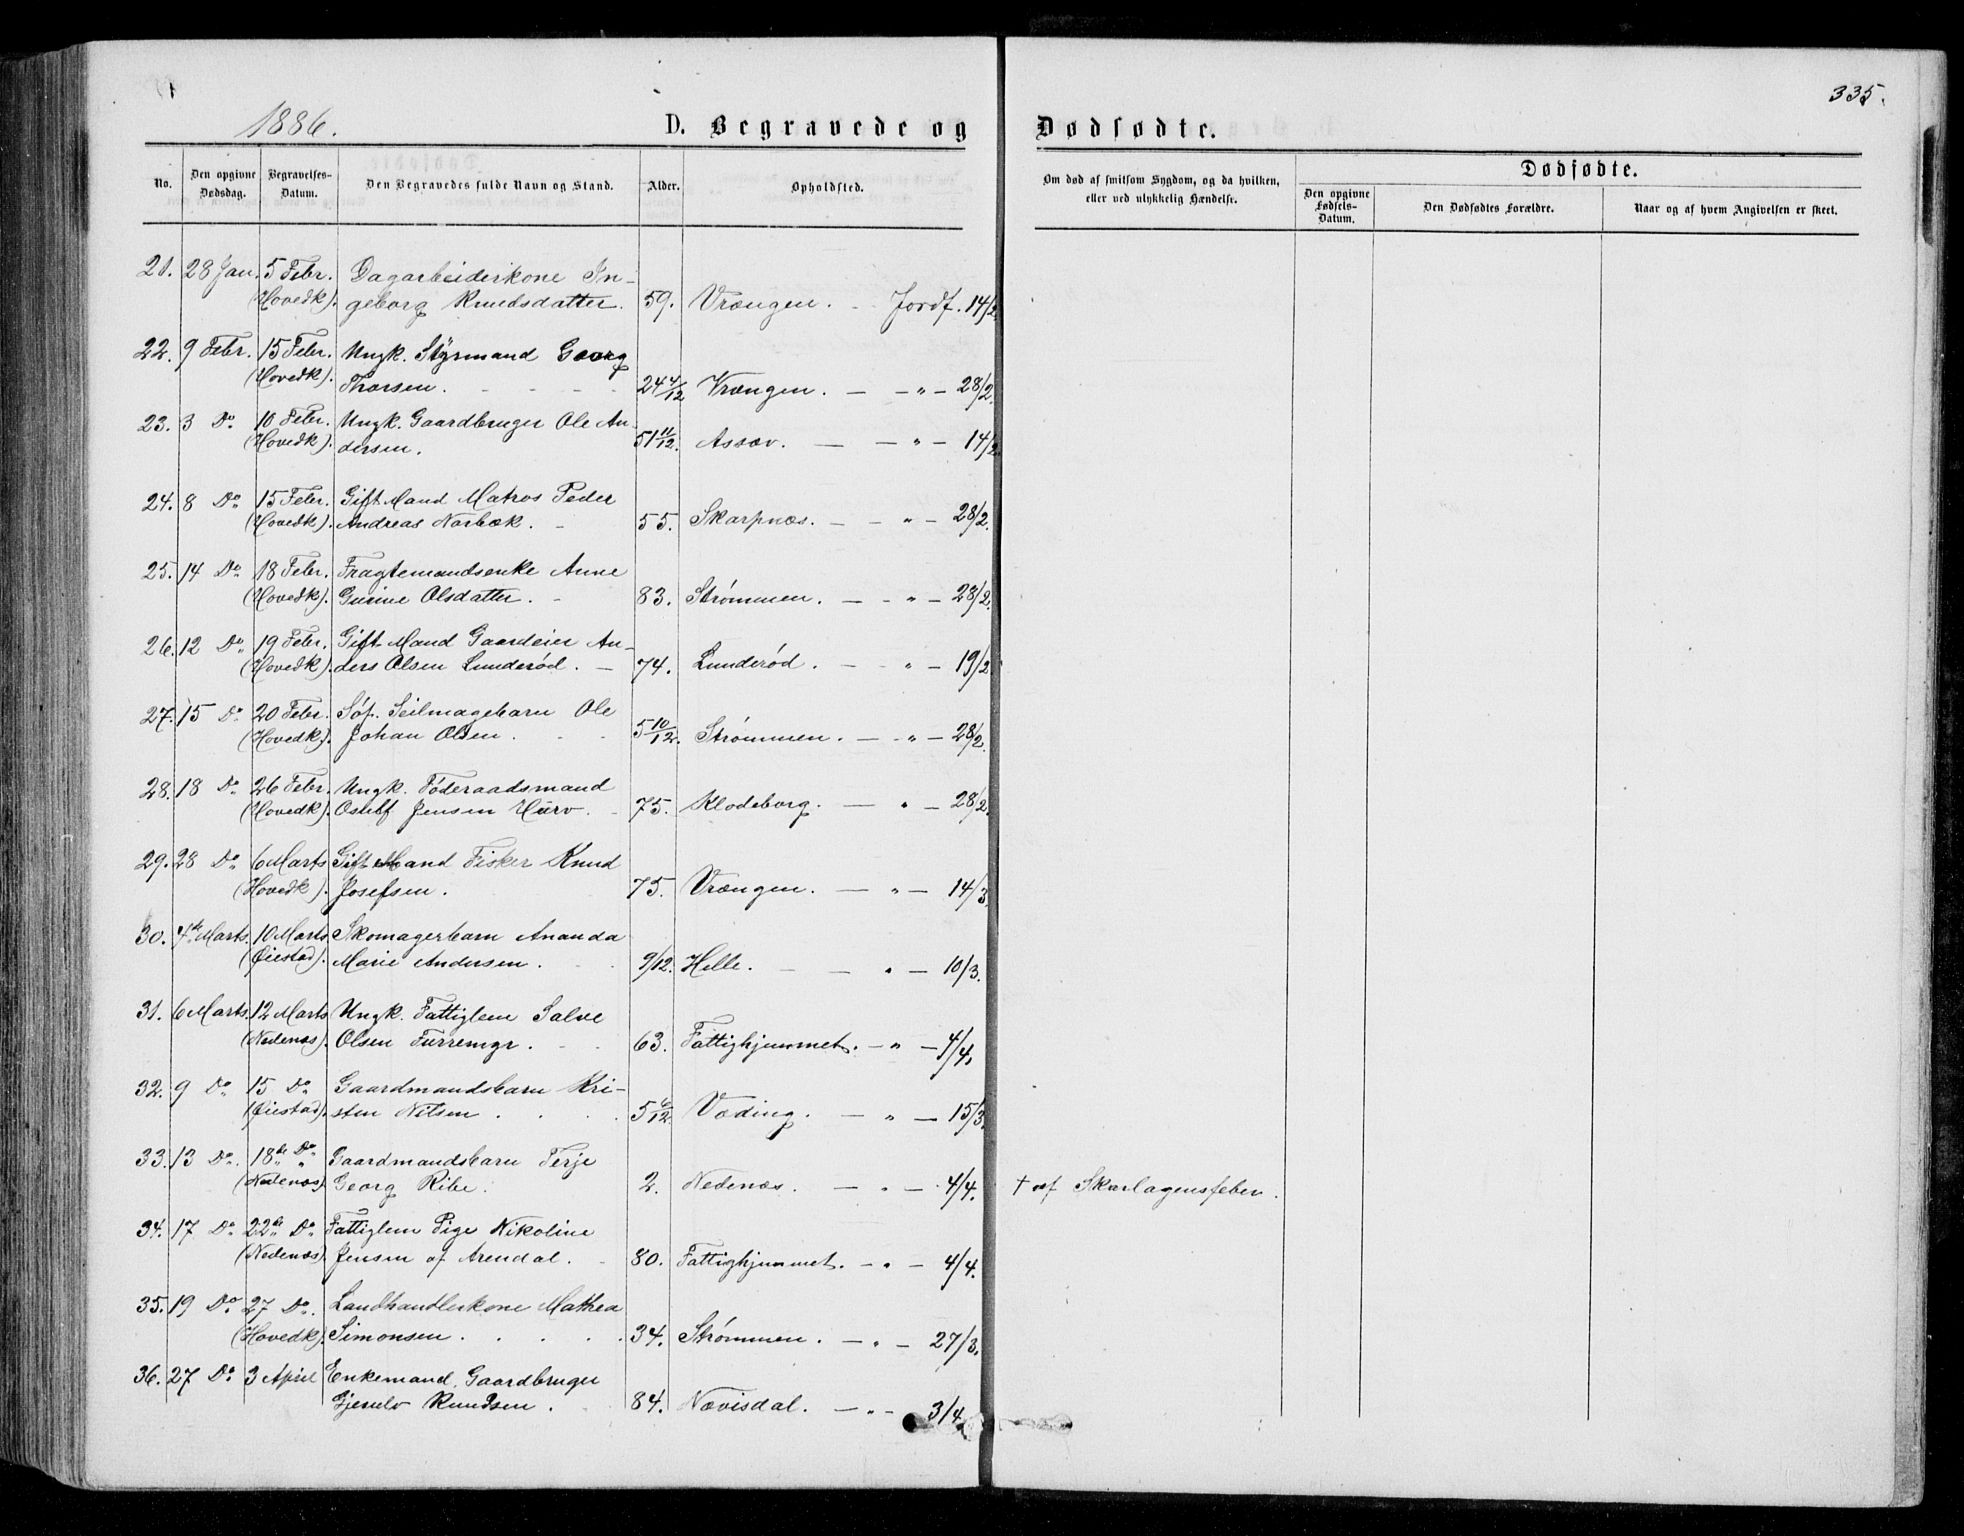 335.
1886.
D. Begravede og Dødfødte.
No.
Den opgivne Dødsdag.
Begravelses-Datum.
Den Begravedes fulde Navn og Stand.
Alder.
Opholdsted.
Om død af smitsom Sygdom, og da hvilken, eller ved ulykkelig Hændelse.
Dødfødte.
Den opgivne Fødsels-Datum.
Den Dødfødtes Forældre.
Naar og af hvem Angivelsen er skeet.
21. 28 Jan. 5 Febr. Dagarbeiderkone In-
(Hovedk). geborg Knudsdatter. 59. Vrængen. - Jordf. 14/2.
22. 9 Febr. 15 Febr. Ungk. Styrmand Georg
(Hovedk). Thorsen. 24 4/12 Vrængen. — — " — 28/2.
23. 3 Do. 10 Febr. Ungk. Gaardbruger Ole An-
(Hovedk). dersen. 51 11/12. Assæv. — — " — 14/2.
24. 8 Do 15 Febr. Gift Mand Matros Peder
(Hovedk). Andreas Norbæk. - 55. Skarpnæs. — - " — 28/2.
25. 14 Do. 18 Febr. Fragtemandsenke Anne
(Hovedk). Gurine Olsdatter. - 83. Strømmen. — - " — 28/2.
26. 12 Do. 19 Febr. Gift Mand Gaardeier An-
(Hovedk). ders Olsen Lunderød. — 74. Lunderød. — - " — 19/2
27. 15 Do. 20 Febr. Søf. Seilmagebarn Ole
(Hovedk). Johan Olsen. 5 10/12. Strømmen. — - " — 28/2.
28. 18 Do. 26 Febr. Ungk. Føderaadsmand
(Hovedk). Jensen - 75. Klodeborg. — " — 28/2.
29. 28 Do 6 Marts Gift Mand Fisker Knud
(Hovedk). Josefsen. 75. Vrængen. — " — 14/3.
30. 4de Marts. 10 Marts Skomagerbarn Ananda
(Øiestad). Marie Andersen. 9/12. Helle. — — " — 10/3.
31. 6 Marts. 12 Marts Ungk. Fattiglem Salve
(Nedenæs). Olsen Furremyr. 63. Fattighjemmet. — " — 4/4.
32. 9 Do 15 Do. Gaardmandsbarn Kri-
(Øiestad). sten Nilsen. 5 6/12. Væding. — " — 15/3.
33. 13 Do. 18de Do. Gaardmandsbarn Terje
(Nedenæs). Georg Ribe. 2. Nedenæs. — " — 4/4. † af Skarlagensfeber.
34. 17 Do. 22de Do. Fattiglem Pige Nikoline
(Nedenæs). Jensen af Arendal. - 80. Fattighjemmet. — " — 4/4.
35. 19 Do. 27 Do. Landhandlerkone Mathea
(Hovedk). Simonsen. 34. Strømmen. — " — 27/3.
36. 27 Do. 3 April Enkemand, Gaardbruger
Gjerulv Knudsen. 84. Nævisdal. — " — 3/4